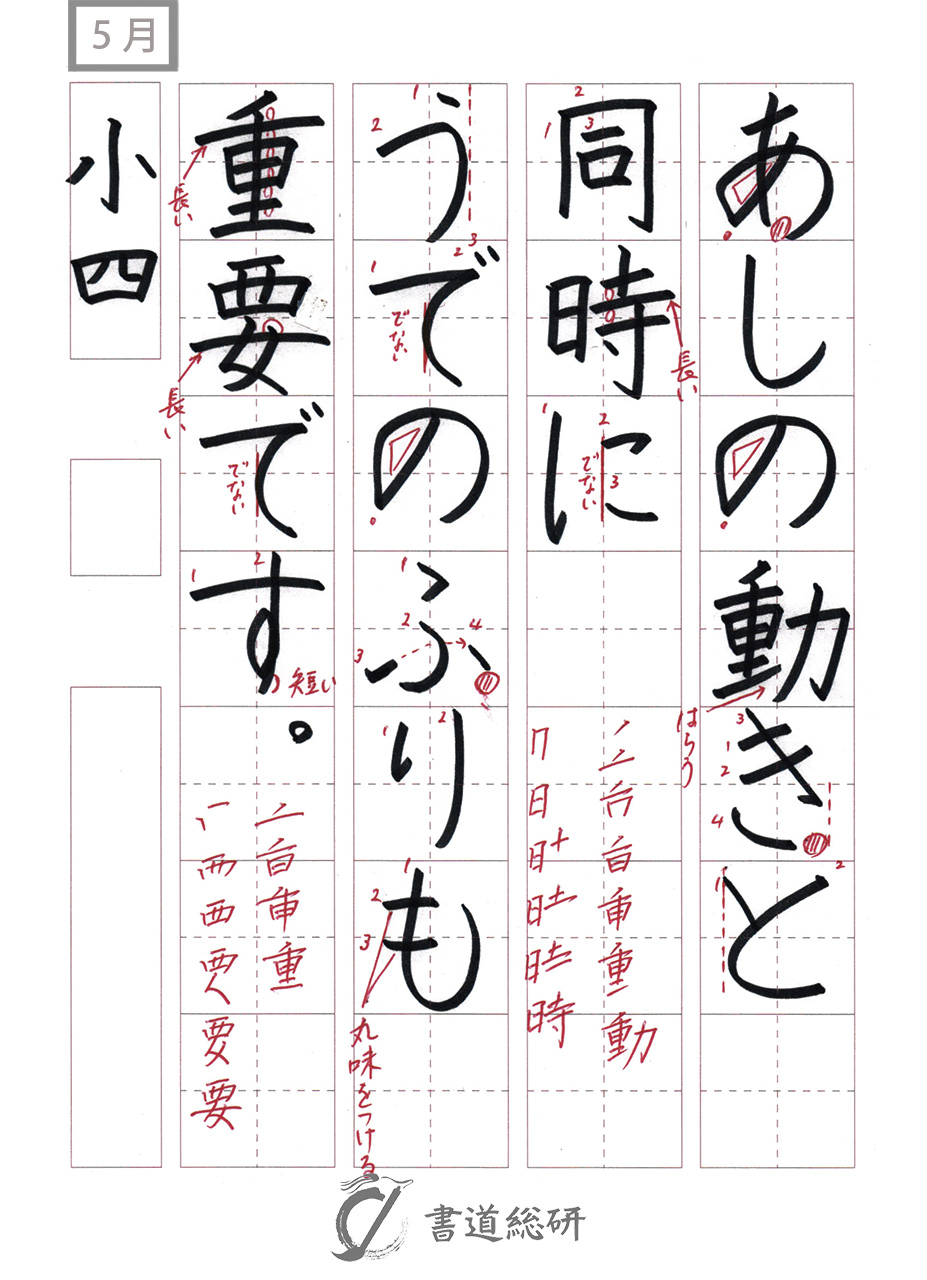 5月
あしの動きと
同時に
うでのふりも
重要です。
小四
はらう
長い
でない
でない
丸味をつける
長い
長い
でない
短い
書道総研